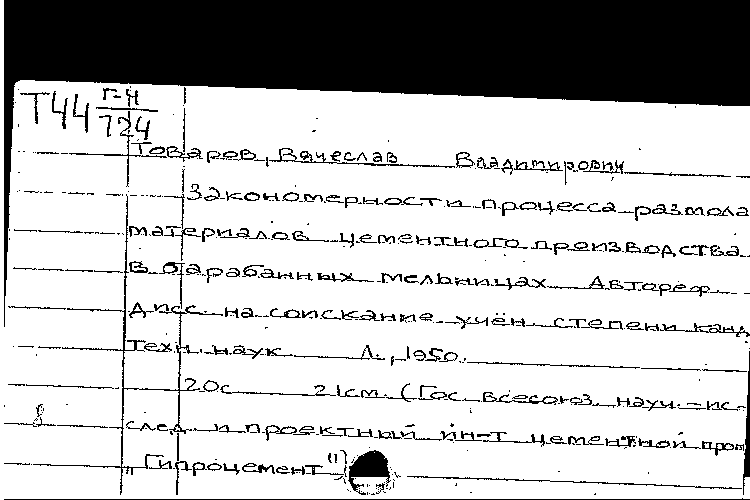 Т44 Г-4
724
Товаров, Вячеслав Владимирович
Закономерности процесса размола
материалов цементного производства
в барабанных мельницах Автореф.
дисс. на соискание учён степени канд
техн. наук Л., 1950.
20с 21см. (Гос. всесоюз. науч.-ис-
8 след. и проектный ин-т цементной пром
"Гипроцемент")